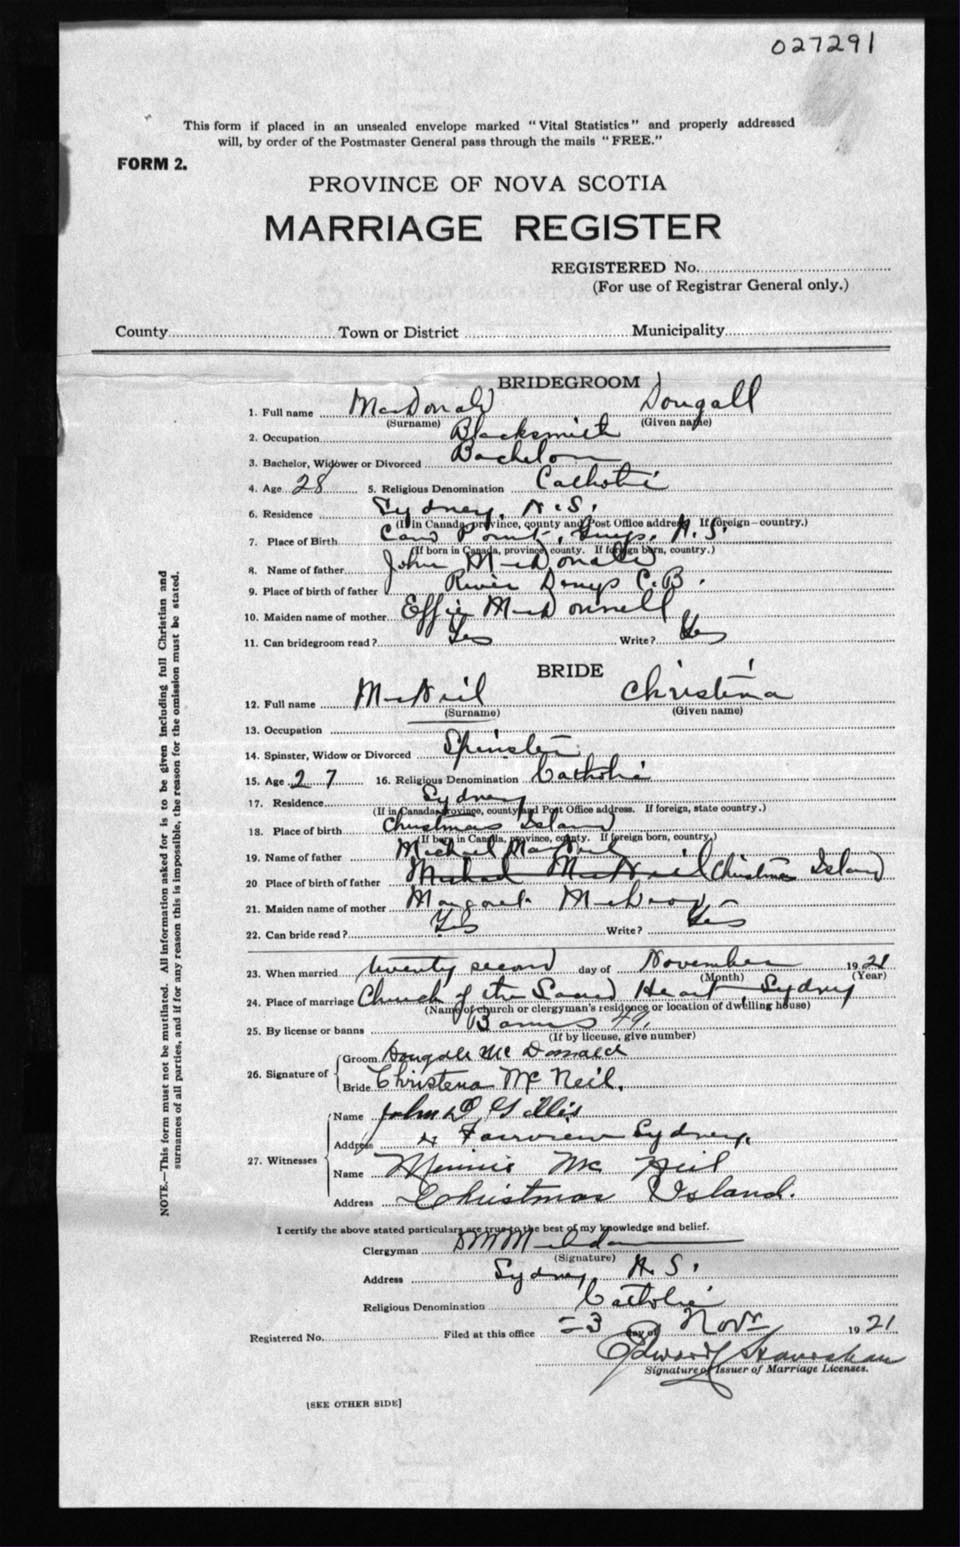 027291
This form if placed in an unsealed envelope marked "Vital Statistics" and properly addressed
will, by order of the Postmaster General pass through the mails "FREE."
FORM 2.
PROVINCE OF NOVA SCOTIA
MARRIAGE REGISTER
REGISTERED No.
(For use of Registrar General only.)
County Town or District Municipality
BRIDEGROOM
1. Full name MacDonald Dougall
(Surname) (Given name)
2. Occupation Blacksmith
3. Bachelor, Widower or Divorced Bachelor
4. Age 28 5. Religious Denomination Catholic
6. Residence Sydney, N.S.
(If in Canada, province, county and Post Office address. If foreign—country.)
7. Place of Birth Point, Guys, N.S.
(If born in Canada, province, county. If foreign born, country.)
8. Name of father John McDonald
9. Place of birth of father River Denys C.B.
10. Maiden name of mother Effie McDonnell
11. Can bridegroom read? Yes Write? Yes
BRIDE
12. Full name McNeil Christina
(Surname) (Given name)
13. Occupation
14. Spinster, Widow or Divorced Spinster
15. Age 27 16. Religious Denomination Catholic
17. Residence Sydney
(If in Canada, province, county and Post Office address. If foreign, state country.)
18. Place of birth Christmas Island
(If born in Canada, province, county. If foreign born, country.)
19. Name of father Michael MacNeil
20 Place of birth of father Michael MacNeil Christmas Island
21. Maiden name of mother Margaret
22. Can bride read? Yes Write? Yes
23. When married twenty second day of November 1921
(Month) (Year)
24. Place of marriage Church of the Sacred Heart, Sydney
(Name of church or clergyman's residence or location of dwelling house)
25. By license or banns Banns
(If by license, give number)
26. Signature of Groom Dougall McDonald
Bride Christena McNeil.
27. Witnesses Name John D Gillis
Address Fairview Sydney.
Name Minnie McNeil
Address Christmas Island.
I certify the above stated particulars are true to the best of my knowledge and belief.
Clergyman
(Signature)
Address Sydney N.S.
Religious Denomination Catholic
Registered No. Filed at this office 23 day of Novr 1921
Edward
Signature of Issuer of Marriage Licenses.
[SEE OTHER SIDE]
NOTE.—This form must not be mutilated. All information asked for is to be given including full Christian and
surnames of all parties, and if for any reason this is impossible, the reason for the omission must be stated.